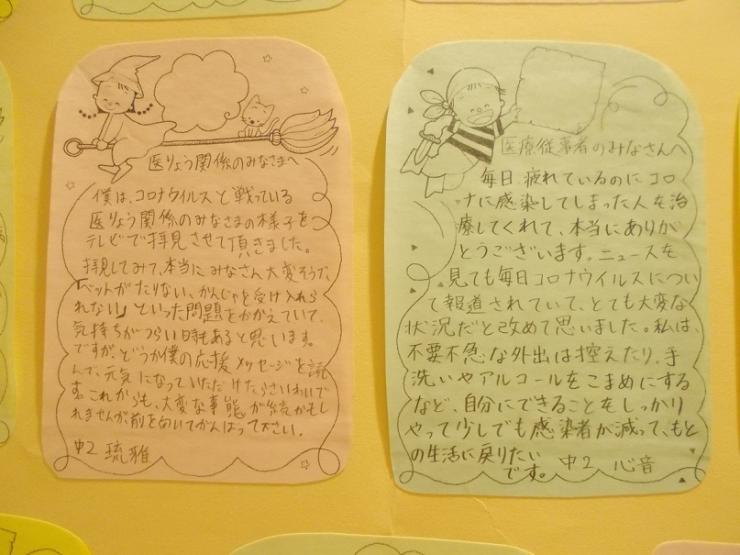 医りょう関係のみなさまへ
僕は、コロナウイルスと戦っている
医りょう関係のみなさまの様子を
テレビで拝見させて頂きました。
拝見してみて、本当にみなさん大変そうで、
「ベットがたりない、かんじゃを受け入れら
れない」といった問題をかかえていて、
気持ちがつらい日時もあると思います。
ですが、どうか僕の応援メッセージを読
んで、元気になっていただけたらさいわいで
す。これからも、大変な事態が続くかもし
れませんが、前を向いてがんばって下さい。
中2 琉雅
医療従事者のみなさんへ
毎日、疲れているのにコロ
ナに感染してしまった人を治
療してくれて、本当にありが
とうございます。ニュースを
見ても毎日コロナウイルスについ
て報道されていて、とても大変な
状況だと改めて思いました。私は、
不要不急な外出は控えたり、手
洗いやアルコールをこまめにする
など、自分にできることをしっかり
やって少しでも感染者が減って、もと
の生活に戻りたい
です。 中2 心音